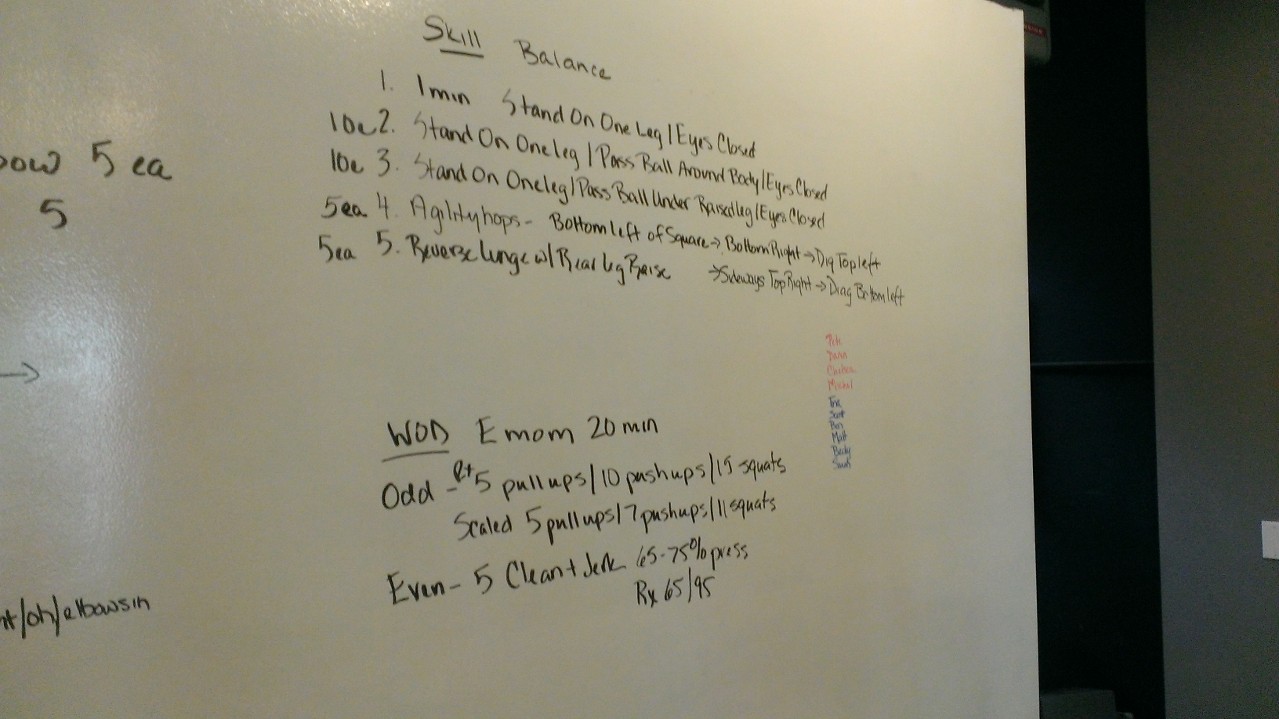 Skill Balance
1. 1 min Stand On One Leg / Eyes Closed
10e 2. Stand On One leg / Pass Ball Around Body / Eyes Closed
10e 3. Stand On One leg / Pass Ball Under Raised leg / Eyes Closed
5ea 4. Agility hops - Bottom left of Square → Bottom Right → Diag Top left
→ Sideways Top Right → Diag Bottom left
5ea 5. Reverse lunge w/ Rear leg Raise
ow 5 ea
5
→
WOD Emom 20 min
Odd - 5 pull ups / 10 pushups / 15 squats
Scaled 5 pull ups / 7 pushups / 11 squats
Even - 5 Clean + Jerk 65-75% press
Rx 65/95
/oh/elbowsin
Matt
Becky